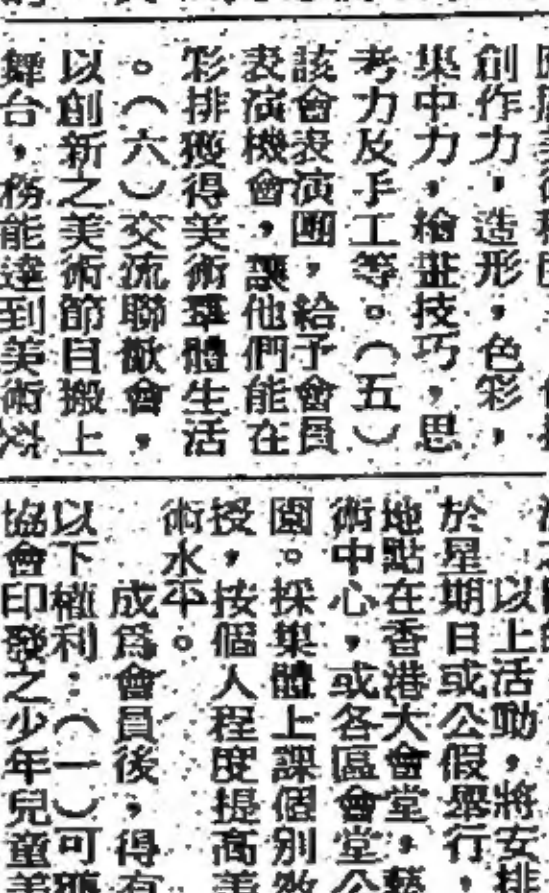 創作力，造形，色彩，
集中力，繪畫技巧，思
考力及手工等。（五）
該會表演團，給予會員
表演機會，讓他們能在
彩排獲得美術羣體生活
。（六）交流聯歡會，
以創新之美術節目搬上
舞台，務能達到美術
以上活動，將安排
於星期日或公假舉行，
地點在香港大會堂，藝
術中心，或各區會堂公
園。採集體上課個別教
授，按個人程度提高美
術水平。
成爲會員後，得有
以下權利：（一）可獲
協會印發之少年兒童美